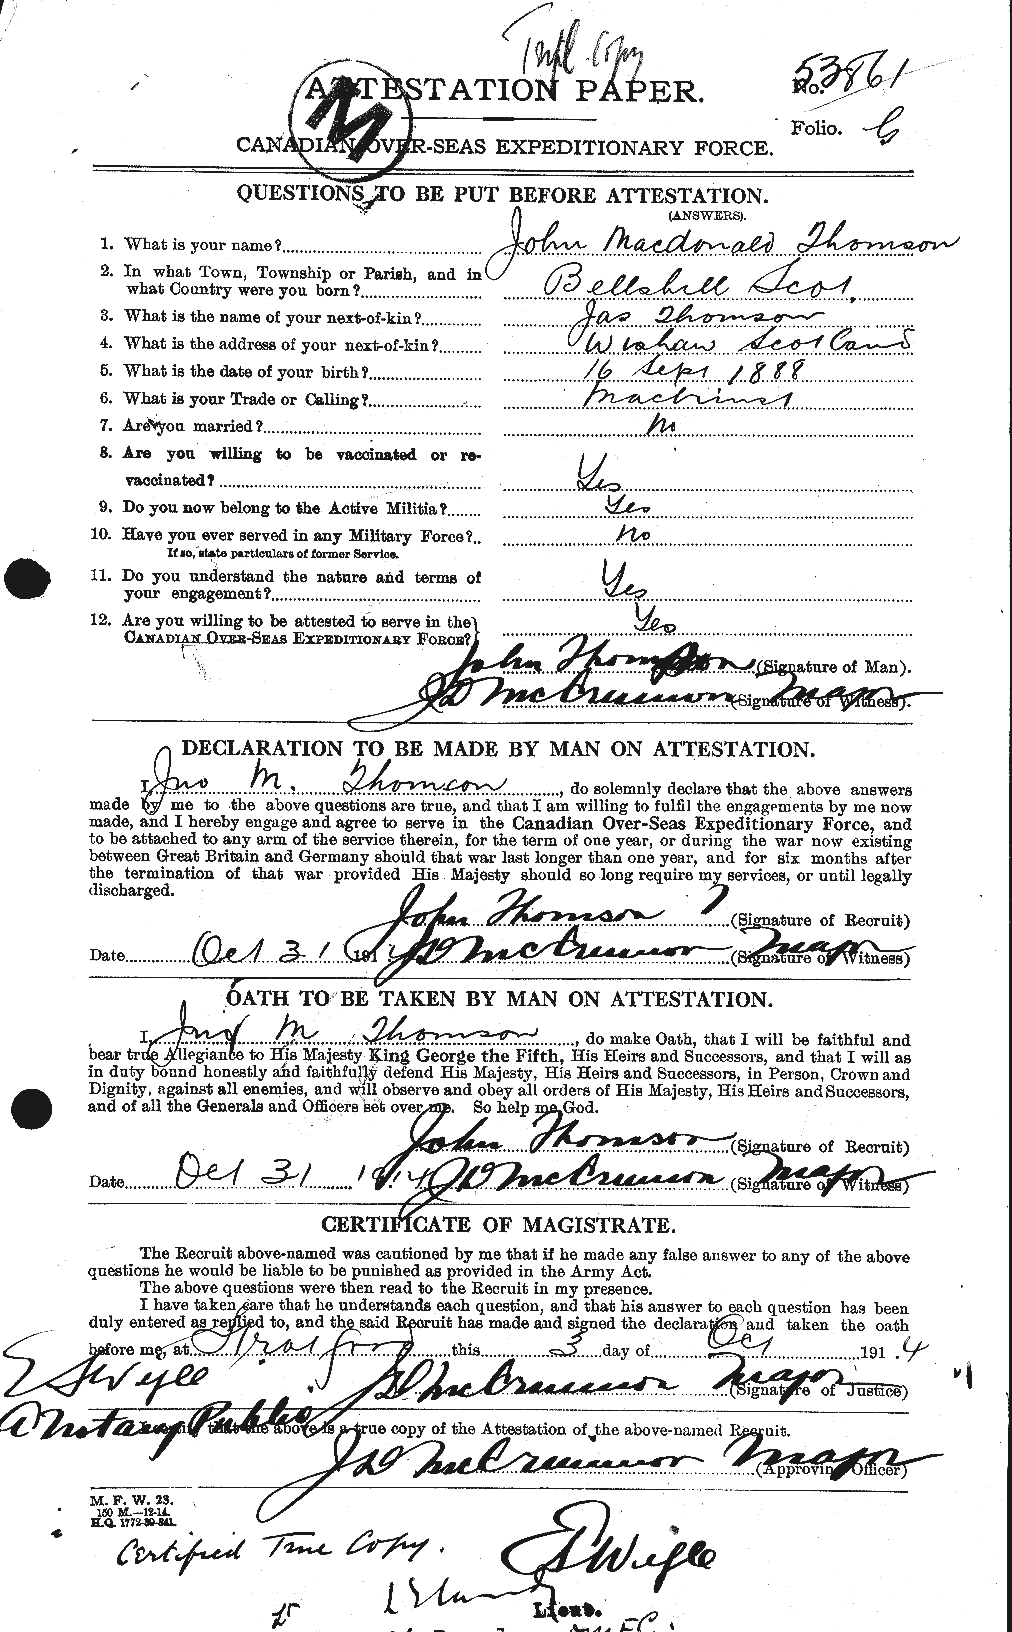 Tripl Copy
ATTESTATION PAPER.
No. 53861
M
Folio.
CANADIAN OVER-SEAS EXPEDITIONARY FORCE.
QUESTIONS TO BE PUT BEFORE ATTESTATION.
(ANSWERS).
1. What is your name? John Macdonald Thomson
2. In what Town, Township or Parish, and in
what Country were you born? Bellshill Scot.
3. What is the name of your next-of-kin? Jas Thomson
4. What is the address of your next-of-kin? Wishaw Scotland
5. What is the date of your birth? 16 Sept 1888
6. What is your Trade or Calling? Machinist
7. Are you married? No
8. Are you willing to be vaccinated or re-
vaccinated? Yes
9. Do you now belong to the Active Militia? Yes
10. Have you ever served in any Military Force? No
If so, state particulars of former Service.
11. Do you understand the nature and terms of
your engagement? Yes
12. Are you willing to be attested to serve in the
CANADIAN OVER-SEAS EXPEDITIONARY FORCE? Yes
John Thomson (Signature of Man).
JD McCrimmon Major (Signature of Witness).
DECLARATION TO BE MADE BY MAN ON ATTESTATION.
I, Jno M. Thomson, do solemnly declare that the above answers
made by me to the above questions are true, and that I am willing to fulfil the engagements by me now
made, and I hereby engage and agree to serve in the Canadian Over-Seas Expeditionary Force, and
to be attached to any arm of the service therein, for the term of one year, or during the war now existing
between Great Britain and Germany should that war last longer than one year, and for six months after
the termination of that war provided His Majesty should so long require my services, or until legally
discharged.
John Thomson (Signature of Recruit)
Date Oct 31 1914 JD McCrimmon Major (Signature of Witness)
OATH TO BE TAKEN BY MAN ON ATTESTATION.
I, Jno M Thomson, do make Oath, that I will be faithful and
bear true Allegiance to His Majesty King George the Fifth, His Heirs and Successors, and that I will as
in duty bound honestly and faithfully defend His Majesty, His Heirs and Successors, in Person, Crown and
Dignity, against all enemies, and will observe and obey all orders of His Majesty, His Heirs and Successors,
and of all the Generals and Officers set over me. So help me God.
John Thomson (Signature of Recruit)
Date Oct 31 1914 JD McCrimmon Major (Signature of Witness)
CERTIFICATE OF MAGISTRATE.
The Recruit above-named was cautioned by me that if he made any false answer to any of the above
questions he would be liable to be punished as provided in the Army Act.
The above questions were then read to the Recruit in my presence.
I have taken care that he understands each question, and that his answer to each question has been
duly entered as replied to, and the said Recruit has made and signed the declaration and taken the oath
before me, at Stratford this 3 day of Oct 1914
ES Wigle JD McCrimmon Major (Signature of Justice)
A Notary Public
that the above is a true copy of the Attestation of the above-named Recruit.
JD McCrimmon Major (Approving Officer)
M. F. W. 23.
150 M.—12-14.
H.Q. 1772-39-841.
Certified True Copy.
ES Wigle
Lieut.